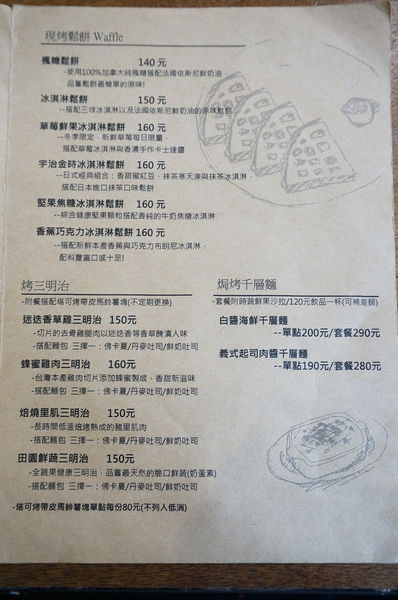 現烤鬆餅 Waffle
楓糖鬆餅 140 元
-使用100%加拿大純楓糖搭配法國依斯尼鮮奶油，
品嘗鬆餅最簡單的原味!
冰淇淋鬆餅 150 元
--搭配三球冰淇淋以及法國依斯尼鮮奶油的原味鬆餅
草莓鮮果冰淇淋鬆餅 160 元
--冬季限定，新鮮草莓每日限量，
搭配草莓冰淇淋與香濃手作卡士達醬
宇治金時冰淇淋鬆餅 160 元
--日式經典組合：香甜蜜紅豆，抹茶寒天凍與抹茶冰淇淋，
搭配日本進口抹茶口味鬆餅
堅果焦糖冰淇淋鬆餅 160 元
--綜合健康堅果顆粒搭配香純的牛奶焦糖冰淇淋
香蕉巧克力冰淇淋鬆餅 160 元
--搭配新鮮本產香蕉與巧克力布朗尼冰淇淋，
配料豐富口感十足!
烤三明治
-附餐搭塔可烤帶皮馬鈴薯塊(不定期更換)
迷迭香草雞三明治 150元
-切片的去骨雞腿肉以迷迭香等香草醃漬入味
-搭配麵包 三擇一：佛卡夏/丹麥吐司/鮮奶吐司
蜂蜜雞肉三明治 160元
-台灣本產雞肉切片添加蜂蜜製成，香甜新滋味
-搭配麵包 三擇一：佛卡夏/丹麥吐司/鮮奶吐司
焙燒里肌三明治 150元
-長時間低溫焙烤熟成的豬里肌肉
-搭配麵包 三擇一：佛卡夏/丹麥吐司/鮮奶吐司
田園鮮蔬三明治 150元
-全蔬果健康三明治，品嘗最天然的脆口鮮蔬(奶蛋素)
-搭配麵包 三擇一：佛卡夏/丹麥吐司/鮮奶吐司
-塔可烤帶皮馬鈴薯塊單點每份80元(不列入低消)
焗烤千層麵
-套餐附時蔬鮮果沙拉/120元飲品一杯(可補差額)
白醬海鮮千層麵
--單點200元/套餐290元
義式起司肉醬千層麵
--單點190元/套餐280元